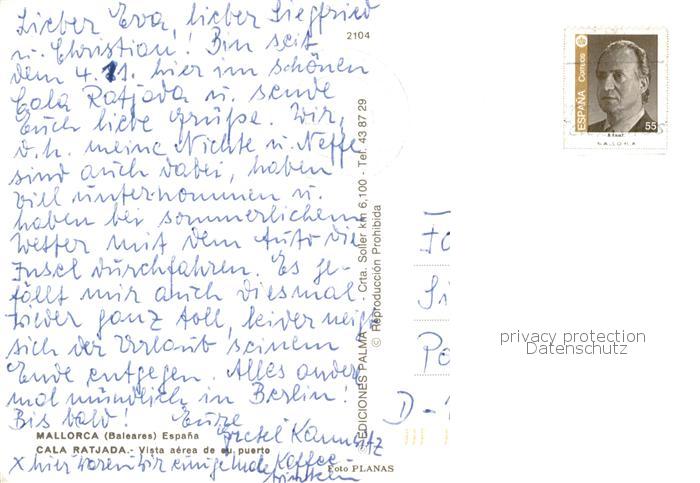 Lieber Eva, lieber Siegfried
u. Christian! Bin seit
dem 4.11. hier im schönen
Cala Ratjada u. sende
Euch liebe Grüße. Wir,
d.h. meine Nichte u. Neffe
sind auch dabei, haben
viel unternommen u.
haben bei sommerlichem
Wetter mit dem Auto die
Insel durchfahren. Es ge-
fällt mir auch diesmal
wieder ganz toll, leider neigt
sich der Urlaub seinem
Ende entgegen. Alles andere
mal mündlich in Berlin!
Bis bald! Eure
Gretel
MALLORCA (Baleares) España
CALA RATJADA.- Vista aérea de su puerto
x hier waren wir einige Kaffee
trinken
Foto PLANAS
2104
EDICIONES PALMA - Crta. Soller km 6,100 - Tel. 43 87 29
© Reproducción Prohibida
ESPAÑA Correos
55
MALLORCA
Si
Po
D-1
privacy protection
Datenschutz